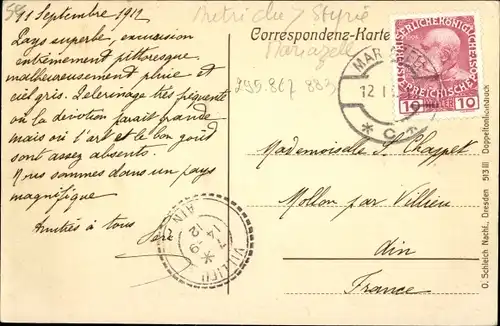 Autriche > Styrie
Mariazell
11 Septembre 1912
Correspondenz-Karte
Pays superbe, excursion
extrêmement pittoresque
malheureusement pluie et
ciel gris. Pelerinage très fréquenté
où la dévotion parait grande
mais où l'art et le bon goût
sont assez absents.
Nous sommes dans un pays
magnifique
Amitiés à tous
295.867 883
KAISERLICHE KÖNIGLICHE
ÖSTERREICHISCHE
10 HELLER 10
MARIAZELL
12 I
* c *
Mademoiselle S. Chappet
Mollon par Villieu
Ain
France
VILLIEU
AIN
7
14-9
12
*
O. Schleich Nachf., Dresden 513 III Doppeltonlichtdruck